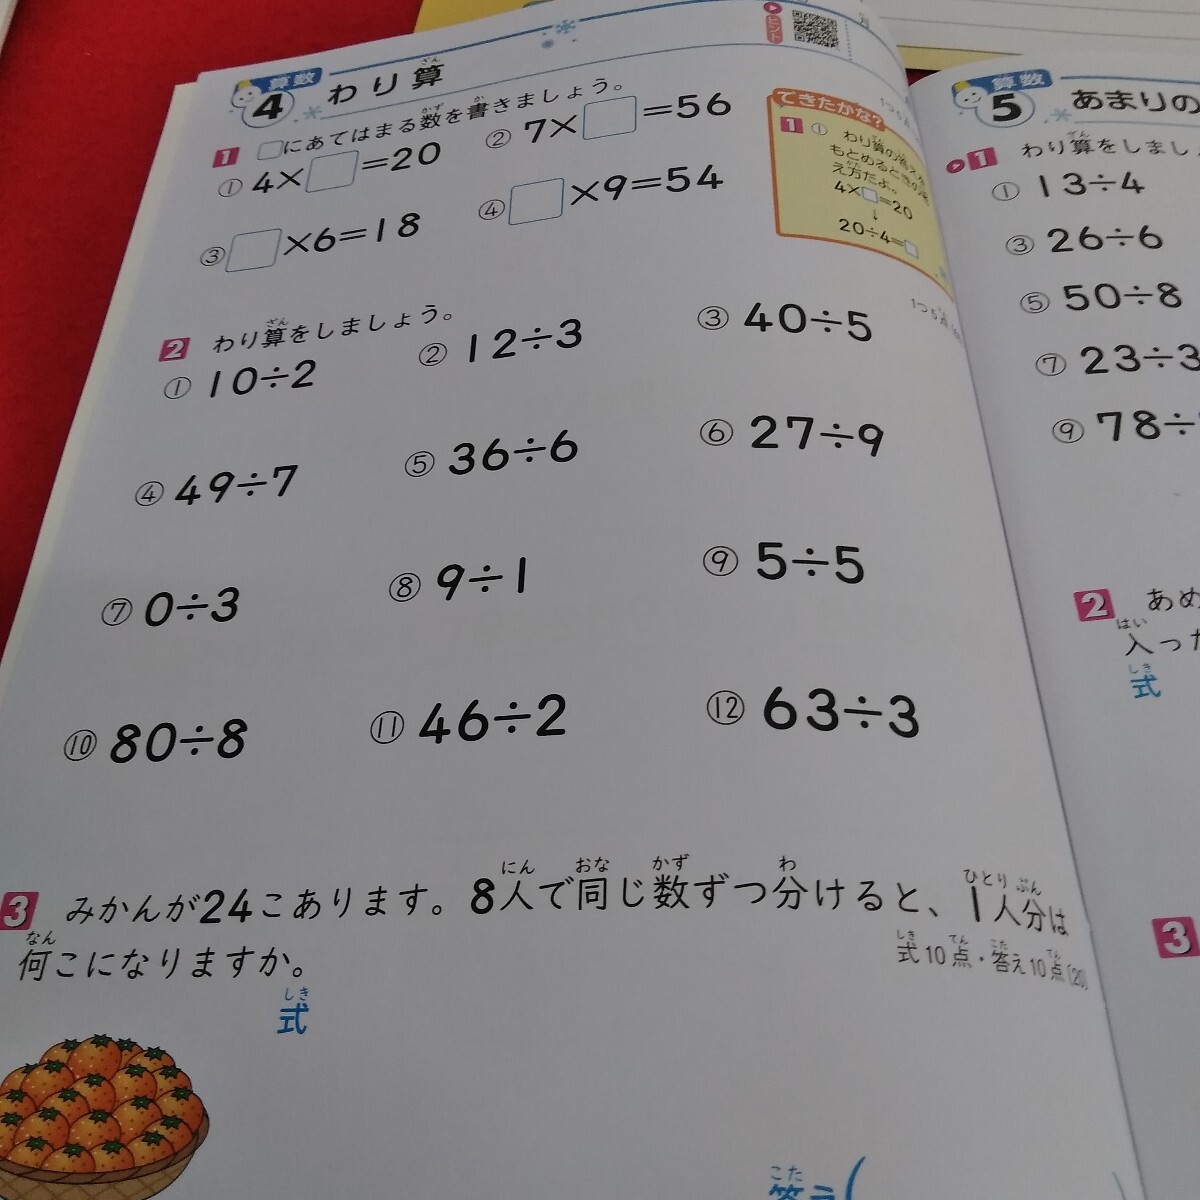 算数
4 わり算
ざん
ヒント
1 □にあてはまる数を書きましょう。
かず か
① 4×□=20
② 7×□=56
③ □×6=18
④ □×9=54
てきたかな?
1 ① わり算の答えを
もとめるときの考
え方だよ。
4×□=20
↓
20÷4=□
2 わり算をしましょう。
ざん
1つ5点
① 10÷2
② 12÷3
③ 40÷5
④ 49÷7
⑤ 36÷6
⑥ 27÷9
⑦ 0÷3
⑧ 9÷1
⑨ 5÷5
⑩ 80÷8
⑪ 46÷2
⑫ 63÷3
にん おな かず わ ひとり ぶん
3 みかんが24こあります。8人で同じ数ずつ分けると、1人分は
なん
何こになりますか。
しき てん こた てん
式10点・答え10点(20)
しき
式
こた
答え(
算数
5 あまりの
ざん
1 わり算をしまし
① 13÷4
③ 26÷6
⑤ 50÷8
⑦ 23÷3
⑨ 78÷
2 あめ
はい
入った
しき
式
3